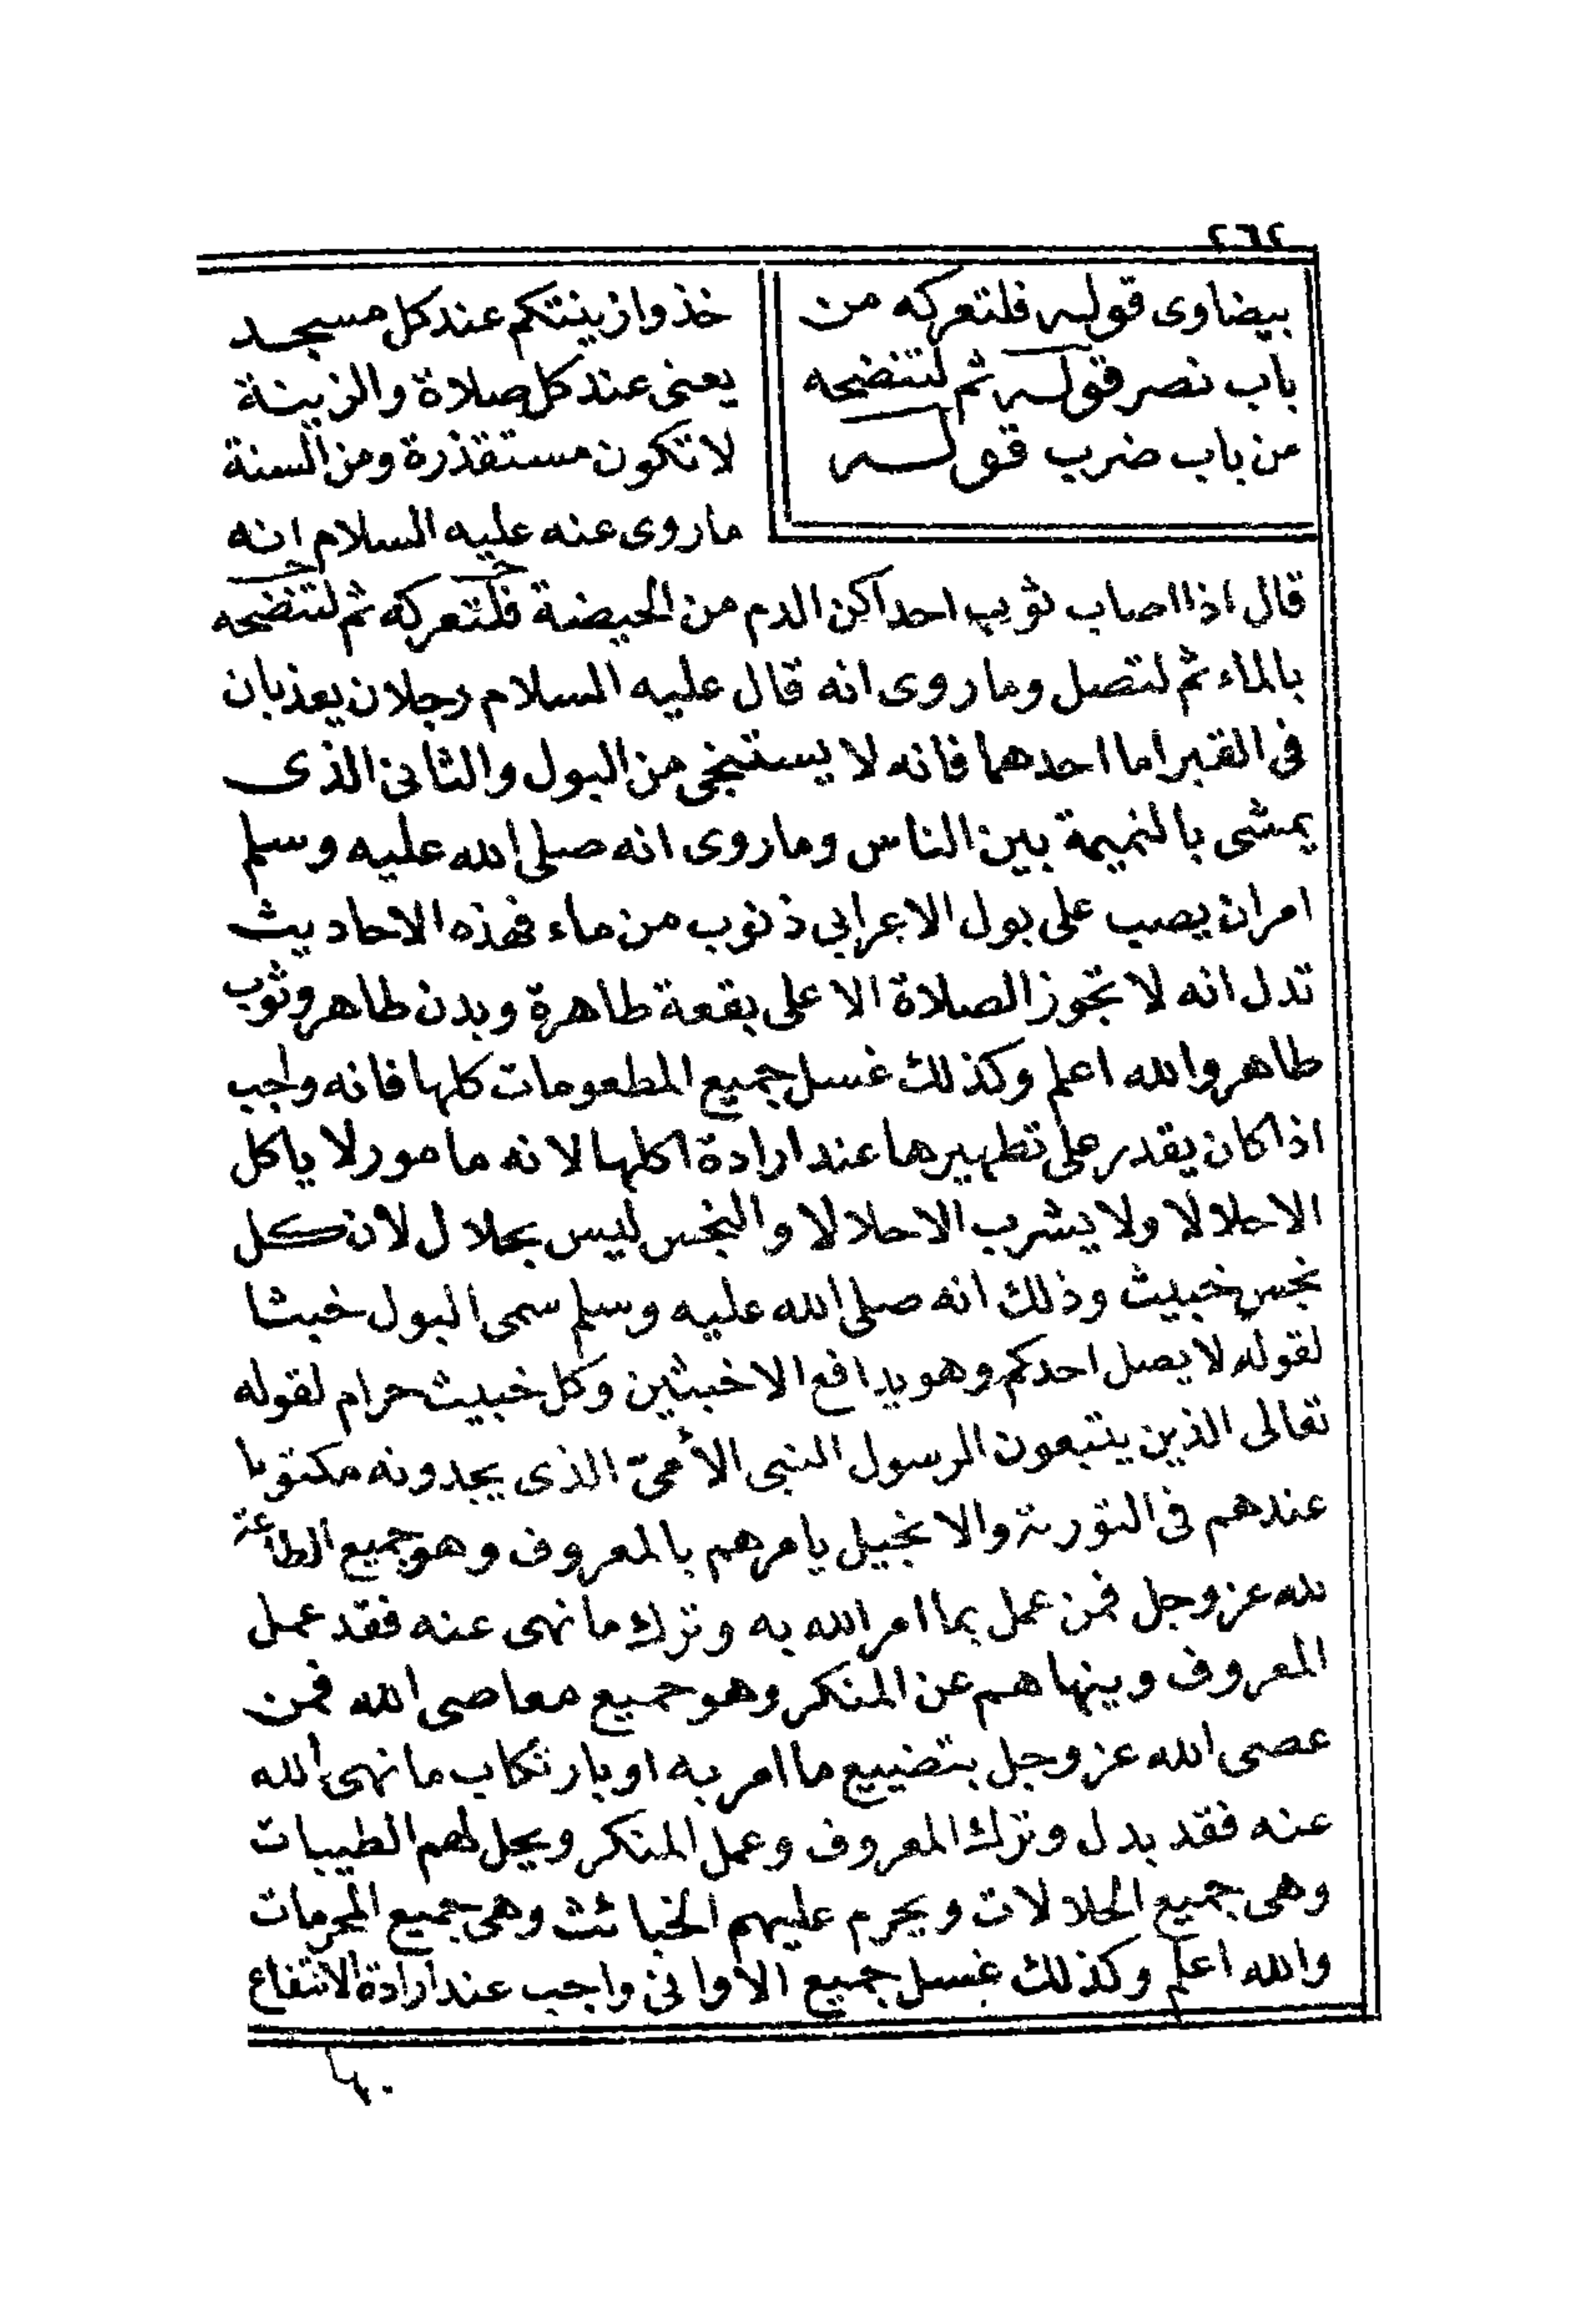 ٢٦٢
بيضاوى قوله فلتعركه من
باب نصر قوله ثم لتنضحه
من باب ضرب قوله
خذوا زينتكم عند كل مسجد
يعنى عند كل صلاة والزينة
لا تكون مستقذرة ومن السنة
ما روى عنه عليه السلام انه
قال اذا اصاب ثوب احداكن الدم من الحيضة فلتعركه ثم لتنضحه
بالماء ثم لتصل وما روى انه قال عليه السلام رجلان يعذبان
فى القبر اما احدهما فانه لا يستنجى من البول والثانى الذى
يمشى بالنميمة بين الناس وما روى انه صلى الله عليه وسلم
امر ان يصب على بول الاعرابى ذنوب من ماء فهذه الاحاديث
تدل انه لا تجوز الصلاة الا على بقعة طاهرة وبدن طاهر وثوب
طاهر والله اعلم وكذلك غسل جميع المطعومات كلها فانه واجب
اذا كان يقدر على تطهيرها عند ارادة اكلها لانه مامور لا ياكل
الا حلالا ولا يشرب الا حلالا والنجس ليس بحلال لان كل
نجس خبيث وذلك انه صلى الله عليه وسلم سمى البول خبثا
لقوله لا يصل احدكم وهو يدافع الاخبثين وكل خبيث حرام لقوله
تعالى الذين يتبعون الرسول النبى الأمىّ الذى يجدونه مكتوبا
عندهم فى التورىة والانجيل يامرهم بالمعروف وهو جميع الطاعة
لله عز وجل فمن عمل بما امر الله به وترك ما نهى عنه فقد عمل
المعروف وينهاهم عن المنكر وهو جميع معاصى الله فمن
عصى الله عز وجل بتضييع ما امر به او بارتكاب ما نهى الله
عنه فقد بدل وترك المعروف وعمل المنكر ويحل لهم الطيبات
وهى جميع الحلالات ويحرم عليهم الخبائث وهى جميع المحرمات
والله اعلم وكذلك غسل جميع الاوانى واجب عند ارادة الانتفاع
بها